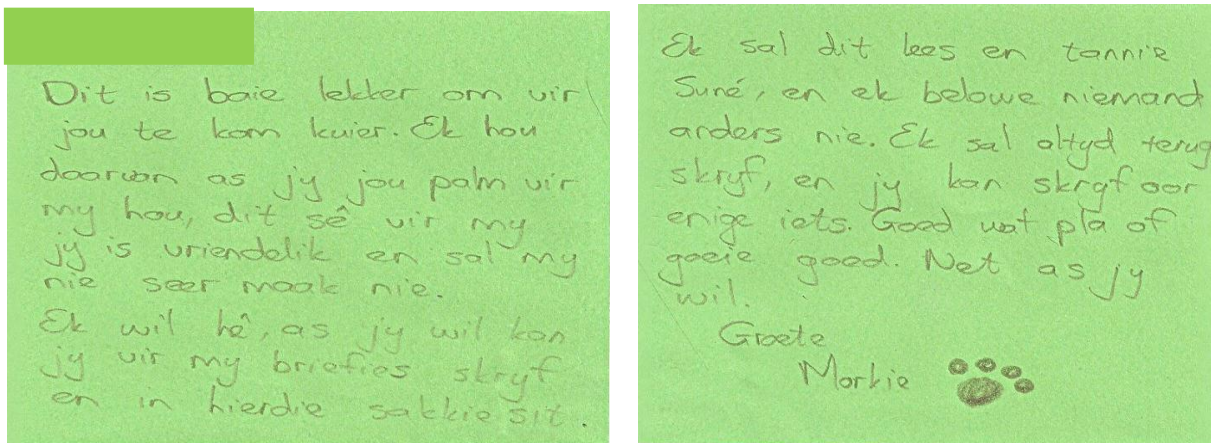 Dit is baie lekker om vir
jou te kom kuier. Ek hou
daarvan as jy jou palm vir
my hou, dit sê vir my
jy is vriendelik en sal my
nie seer maak nie.
Ek wil hê, as jy wil kan
jy vir my briefies skryf
en in hierdie sakkie sit.
Ek sal dit lees en tannie
Suné, en ek belowe niemand
anders nie. Ek sal altyd terug
skryf, en jy kan skryf oor
enige iets. Goed wat pla of
goeie goed. Net as jy
wil.
Groete
Morkie